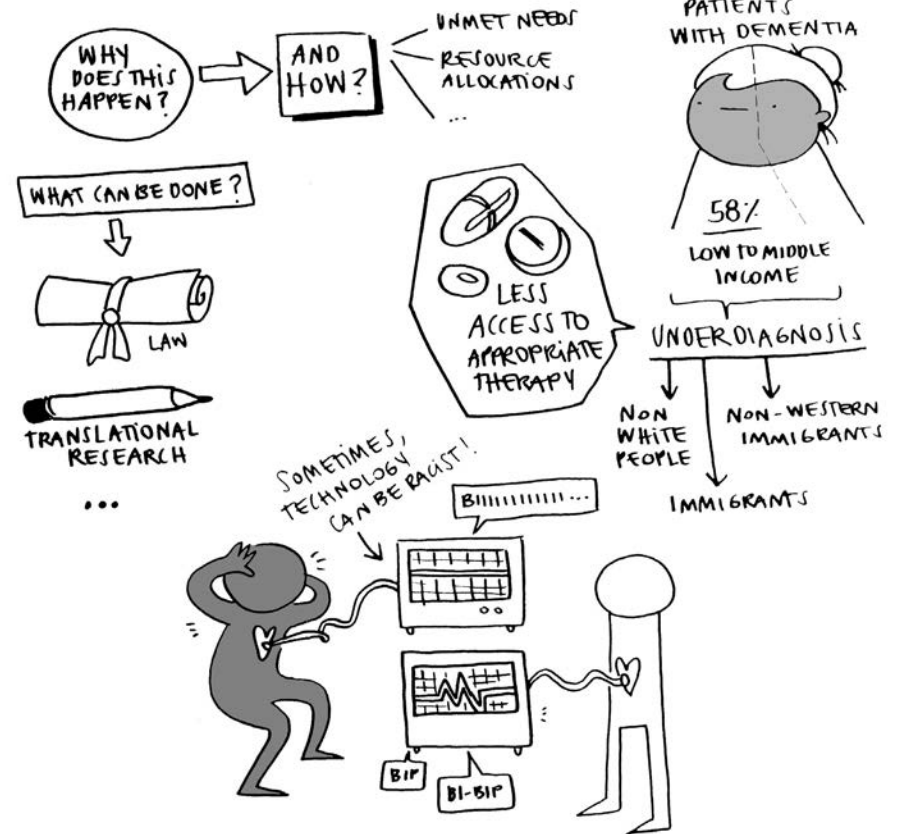 WHY
DOES THIS
HAPPEN?
AND
HOW?
UNMET NEEDS
RESOURCE
ALLOCATIONS
...
PATIENTS
WITH DEMENTIA
58%
LOW TO MIDDLE
INCOME
UNDERDIAGNOSIS
NON
WHITE
PEOPLE
IMMIGRANTS
NON-WESTERN
IMMIGRANTS
LESS
ACCESS TO
APPROPRIATE
THERAPY
WHAT CAN BE DONE?
LAW
TRANSLATIONAL
RESEARCH
...
SOMETIMES,
TECHNOLOGY
CAN BE RACIST!
BIIIIIIIIIIII...
BIP
BI-BIP